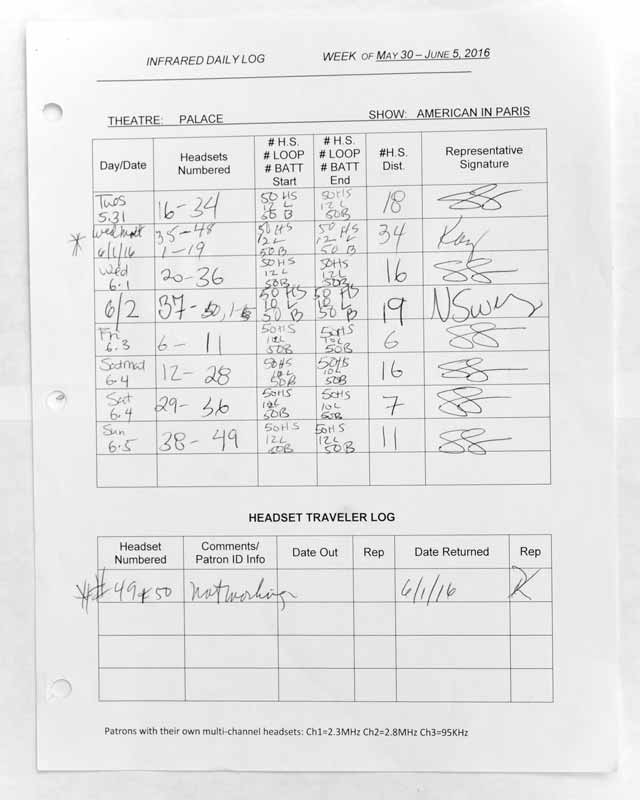 INFRARED DAILY LOG WEEK OF MAY 30 – JUNE 5, 2016
THEATRE: PALACE SHOW: AMERICAN IN PARIS
Day/Date Headsets Numbered # H.S. # LOOP # BATT Start # H.S. # LOOP # BATT End #H.S. Dist. Representative Signature
Tues 5.31 16-34 50 HS 12 L 50 B 50HS 12 L 50B 18
* Wed Mat 6/1/16 35-48 1-19 50 HS 12 L 50 B 50 HS 12 L 50 B 34 Kay
Wed 6.1 20-36 50HS 12L 50B 50HS 12L 50B 16
6/2 37-50, 1-5 50 HS 10 L 50 B 50 HS 10 L 50 B 19
Fri 6.3 6-11 50HS 10L 50B 50HS 10L 50B 6
Sat mat 6.4 12-28 50HS 10L 50B 50HS 10L 50B 16
Sat 6.4 29-36 50HS 10L 50B 50HS 10L 50B 7
Sun 6.5 38-49 50HS 12L 50B 50HS 12L 50B 11
HEADSET TRAVELER LOG
Headset Numbered Comments/ Patron ID Info Date Out Rep Date Returned Rep
* # 49 & 50 Not working 6/1/16 K
Patrons with their own multi-channel headsets: Ch1=2.3MHz Ch2=2.8MHz Ch3=95KHz